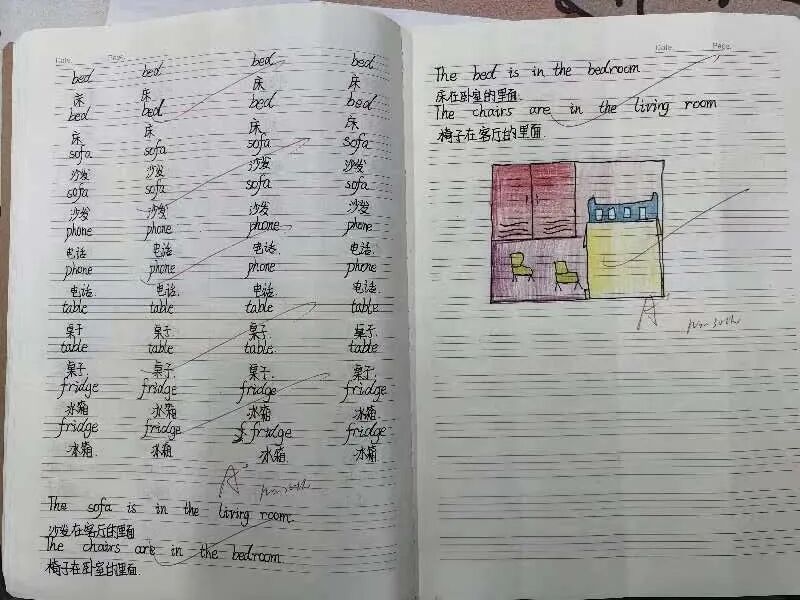 Date. Page.
bed bed bed bed
床 床 床 床
bed bed bed bed
床 床 床 床
sofa sofa sofa sofa
沙发 沙发 沙发 沙发
sofa sofa sofa sofa
沙发 沙发 沙发 沙发
phone phone phone phone
电话 电话 电话 电话
phone phone phone phone
电话 电话 电话 电话
table table table table
桌子 桌子 桌子 桌子
table table table table
桌子 桌子 桌子 桌子
fridge fridge fridge fridge
冰箱 冰箱 冰箱 冰箱
fridge fridge fridge fridge
冰箱 冰箱 冰箱 冰箱
A
The sofa is in the living room.
沙发在客厅的里面
The chairs are in the bedroom.
椅子在卧室的里面.
Date. Page.
The bed is in the bedroom
床在卧室的里面.
The chairs are in the living room
椅子在客厅的里面.
A